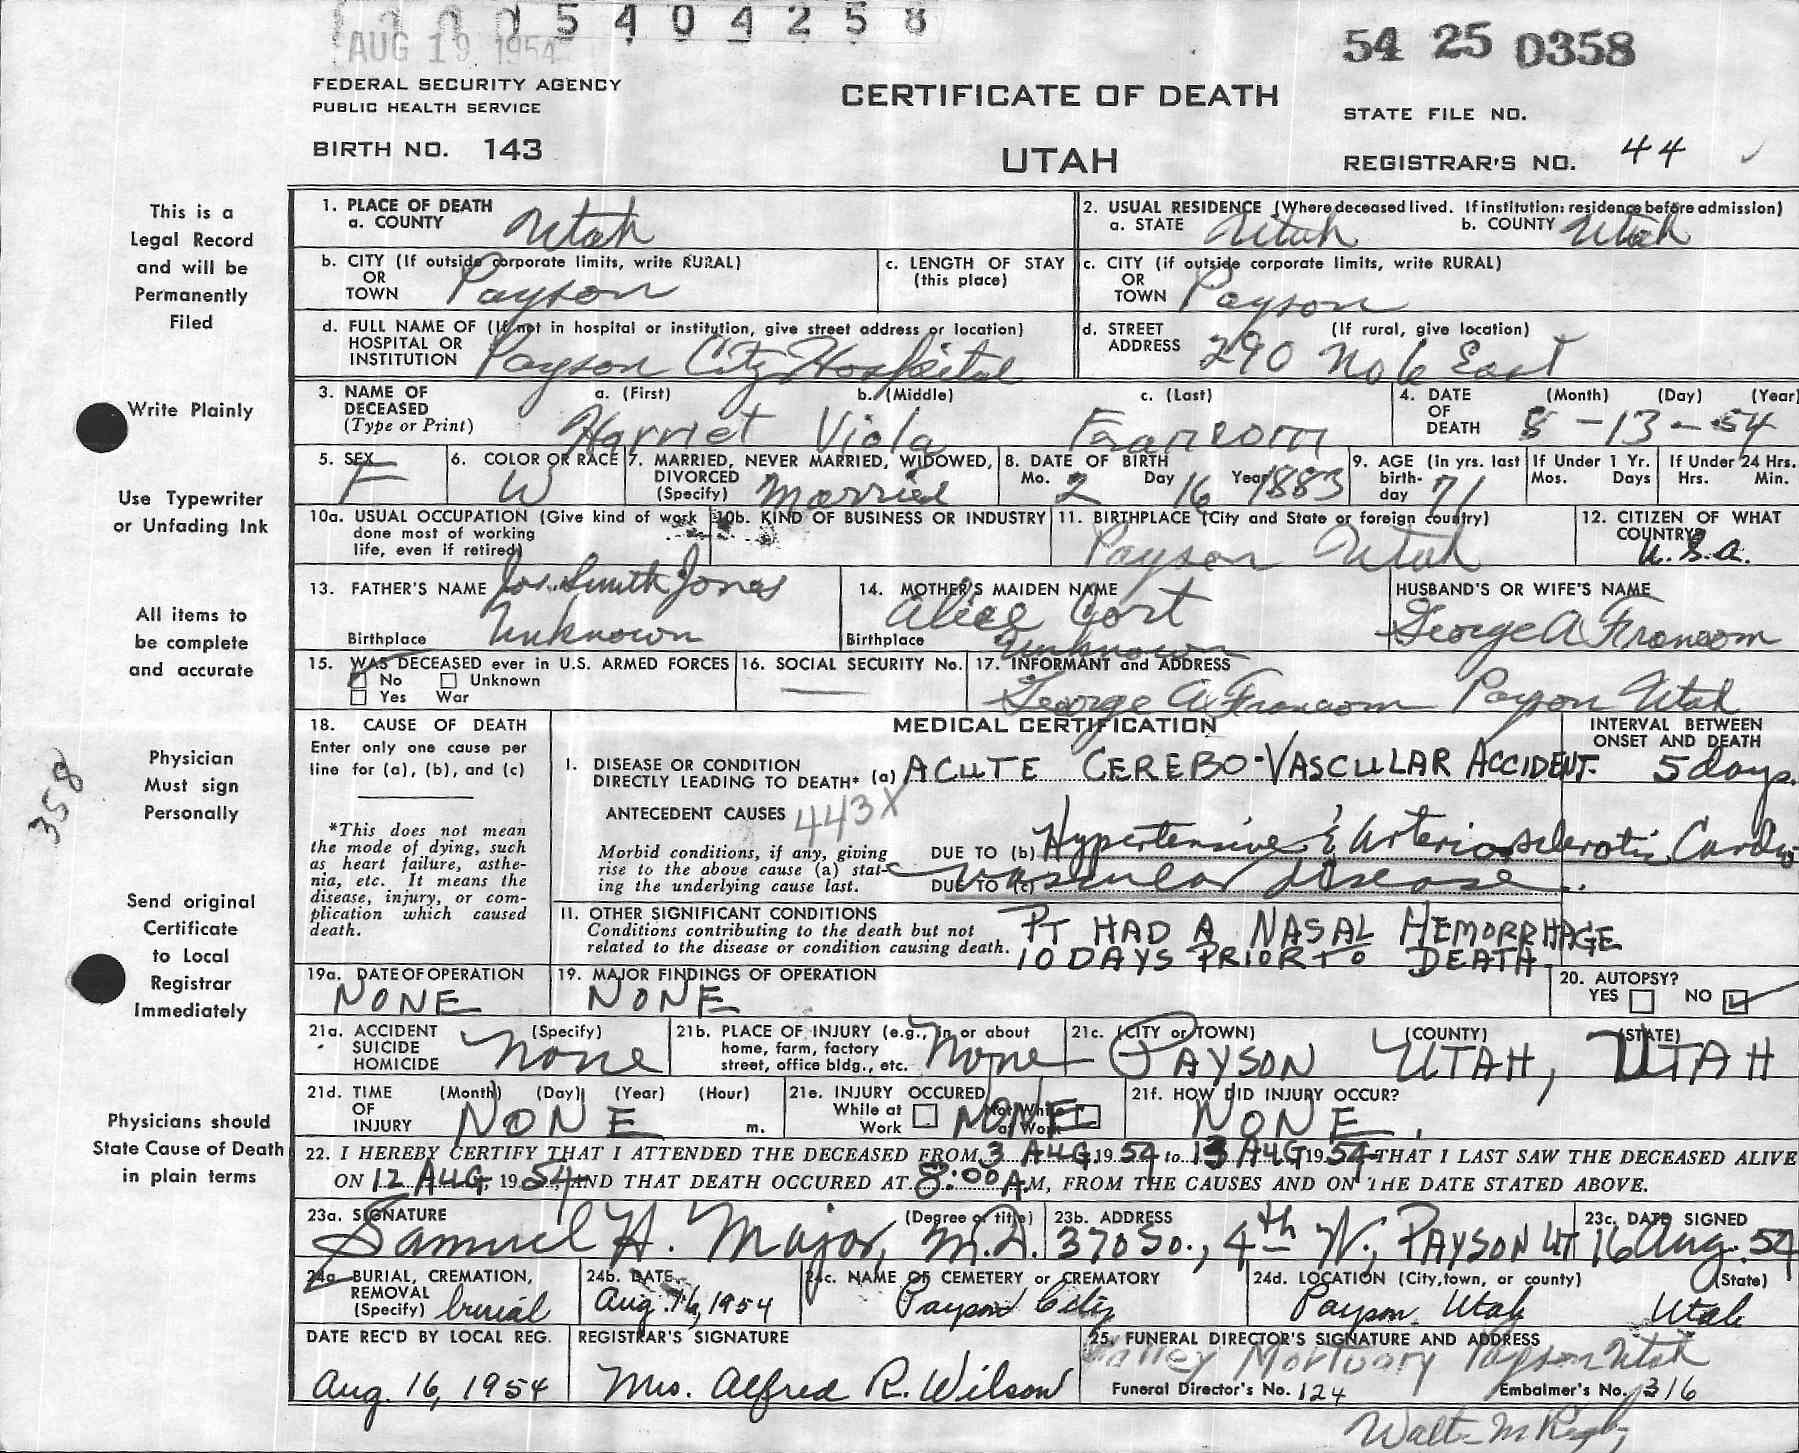 5404258
AUG 19 1954
54 25 0358
FEDERAL SECURITY AGENCY
PUBLIC HEALTH SERVICE
CERTIFICATE OF DEATH
STATE FILE NO.
BIRTH NO. 143
UTAH
REGISTRAR'S NO. 44
This is a
Legal Record
and will be
Permanently
Filed
Write Plainly
Use Typewriter
or Unfading Ink
All items to
be complete
and accurate
Physician
Must sign
Personally
358
Send original
Certificate
to Local
Registrar
Immediately
Physicians should
State Cause of Death
in plain terms
1. PLACE OF DEATH
a. COUNTY Utah
2. USUAL RESIDENCE (Where deceased lived. If institution: residence before admission)
a. STATE Utah b. COUNTY Utah
b. CITY (If outside corporate limits, write RURAL)
OR
TOWN Payson
c. LENGTH OF STAY
(this place)
c. CITY (if outside corporate limits, write RURAL)
OR
TOWN Payson
d. FULL NAME OF (If not in hospital or institution, give street address or location)
HOSPITAL OR
INSTITUTION Payson City Hospital
d. STREET (If rural, give location)
ADDRESS 290 No 6 East
3. NAME OF a. (First) b. (Middle) c. (Last)
DECEASED
(Type or Print) Harriet Viola Francom
4. DATE (Month) (Day) (Year)
OF
DEATH 8-13-54
5. SEX
F
6. COLOR OR RACE
W
7. MARRIED, NEVER MARRIED, WIDOWED,
DIVORCED
(Specify) Married
8. DATE OF BIRTH
Mo. 2 Day 16 Year 1883
9. AGE (in yrs. last
birth-
day 71
If Under 1 Yr.
Mos. Days
If Under 24 Hrs.
Hrs. Min.
10a. USUAL OCCUPATION (Give kind of work
done most of working
life, even if retired)
10b. KIND OF BUSINESS OR INDUSTRY
11. BIRTHPLACE (City and State or foreign country)
Payson Utah
12. CITIZEN OF WHAT
COUNTRY?
U.S.A.
13. FATHER'S NAME Jos. Smith Jones
Birthplace Unknown
14. MOTHER'S MAIDEN NAME
Alice
Birthplace Unknown
HUSBAND'S OR WIFE'S NAME
George A Francom
15. WAS DECEASED ever in U.S. ARMED FORCES
No Unknown
Yes War
16. SOCIAL SECURITY No.
17. INFORMANT and ADDRESS
George A Francom Payson Utah
18. CAUSE OF DEATH
Enter only one cause per
line for (a), (b), and (c)
*This does not mean
the mode of dying, such
as heart failure, asthe-
nia, etc. It means the
disease, injury, or com-
plication which caused
death.
MEDICAL CERTIFICATION
INTERVAL BETWEEN
ONSET AND DEATH
I. DISEASE OR CONDITION
DIRECTLY LEADING TO DEATH* (a) ACUTE CEREBO-VASCULAR ACCIDENT. 5 days.
ANTECEDENT CAUSES 443X
Morbid conditions, if any, giving
rise to the above cause (a) stat-
ing the underlying cause last.
DUE TO (b) Hypertensive & Arteriosclerotic Cardio
DUE TO (c) vascular disease.
II. OTHER SIGNIFICANT CONDITIONS
Conditions contributing to the death but not
related to the disease or condition causing death.
PT HAD A NASAL HEMORRHAGE
10 DAYS PRIOR TO DEATH
19a. DATE OF OPERATION
NONE
19. MAJOR FINDINGS OF OPERATION
NONE
20. AUTOPSY?
YES NO
21a. ACCIDENT (Specify)
SUICIDE
HOMICIDE none
21b. PLACE OF INJURY (e.g., in or about
home, farm, factory
street, office bldg., etc. none
21c. (CITY or TOWN) (COUNTY) (STATE)
PAYSON UTAH, UTAH
21d. TIME (Month) (Day) (Year) (Hour)
OF
INJURY NONE m.
21e. INJURY OCCURED
While at Work Not While at Work NONE
21f. HOW DID INJURY OCCUR?
NONE.
22. I HEREBY CERTIFY THAT I ATTENDED THE DECEASED FROM 3 AUG 1954 to 13 AUG 1954 THAT I LAST SAW THE DECEASED ALIVE
ON 12 AUG, 1954, AND THAT DEATH OCCURED AT 8:00 A.M, FROM THE CAUSES AND ON THE DATE STATED ABOVE.
23a. SIGNATURE (Degree or title)
Samuel H. Major, M.D.
23b. ADDRESS
370 So., 4th W., PAYSON UT
23c. DATE SIGNED
16 Aug. 54
24a. BURIAL, CREMATION,
REMOVAL
(Specify) burial
24b. DATE
Aug. 16, 1954
24c. NAME OF CEMETERY or CREMATORY
Payson City
24d. LOCATION (City, town, or county) (State)
Payson Utah Utah
DATE REC'D BY LOCAL REG.
Aug. 16, 1954
REGISTRAR'S SIGNATURE
Mrs. Alfred R. Wilson
25. FUNERAL DIRECTOR'S SIGNATURE AND ADDRESS
Valley Mortuary Payson Utah
Funeral Director's No. 124 Embalmer's No. 316